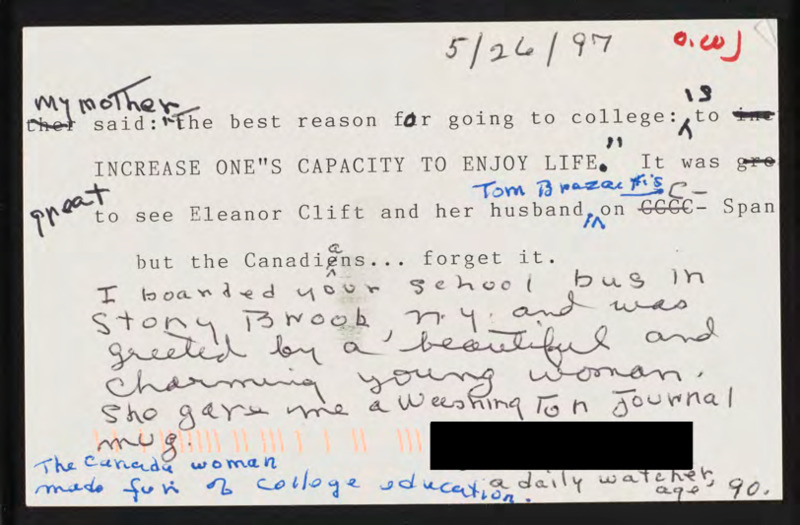 5/26/97
My mother
ther said: "The best reason for going to college: is to ine
INCREASE ONE"S CAPACITY TO ENJOY LIFE." It was gre
great
Tom Brazaitis C-
to see Eleanor Clift and her husband, in on CCCC- Span
but the Canadians... forget it.
I boarded your school bus in
Stony Brook, N.Y. and was
greeted by a beautiful and
charming young woman.
She gave me a Washington Journal
mug.
The Canada woman
made fun of college education.
a daily watcher,
age, 90.